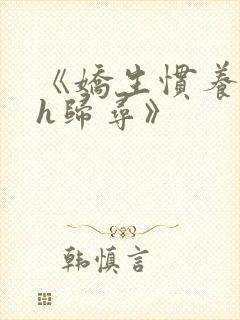 《嬌生慣養
h歸尋》
韩慎言